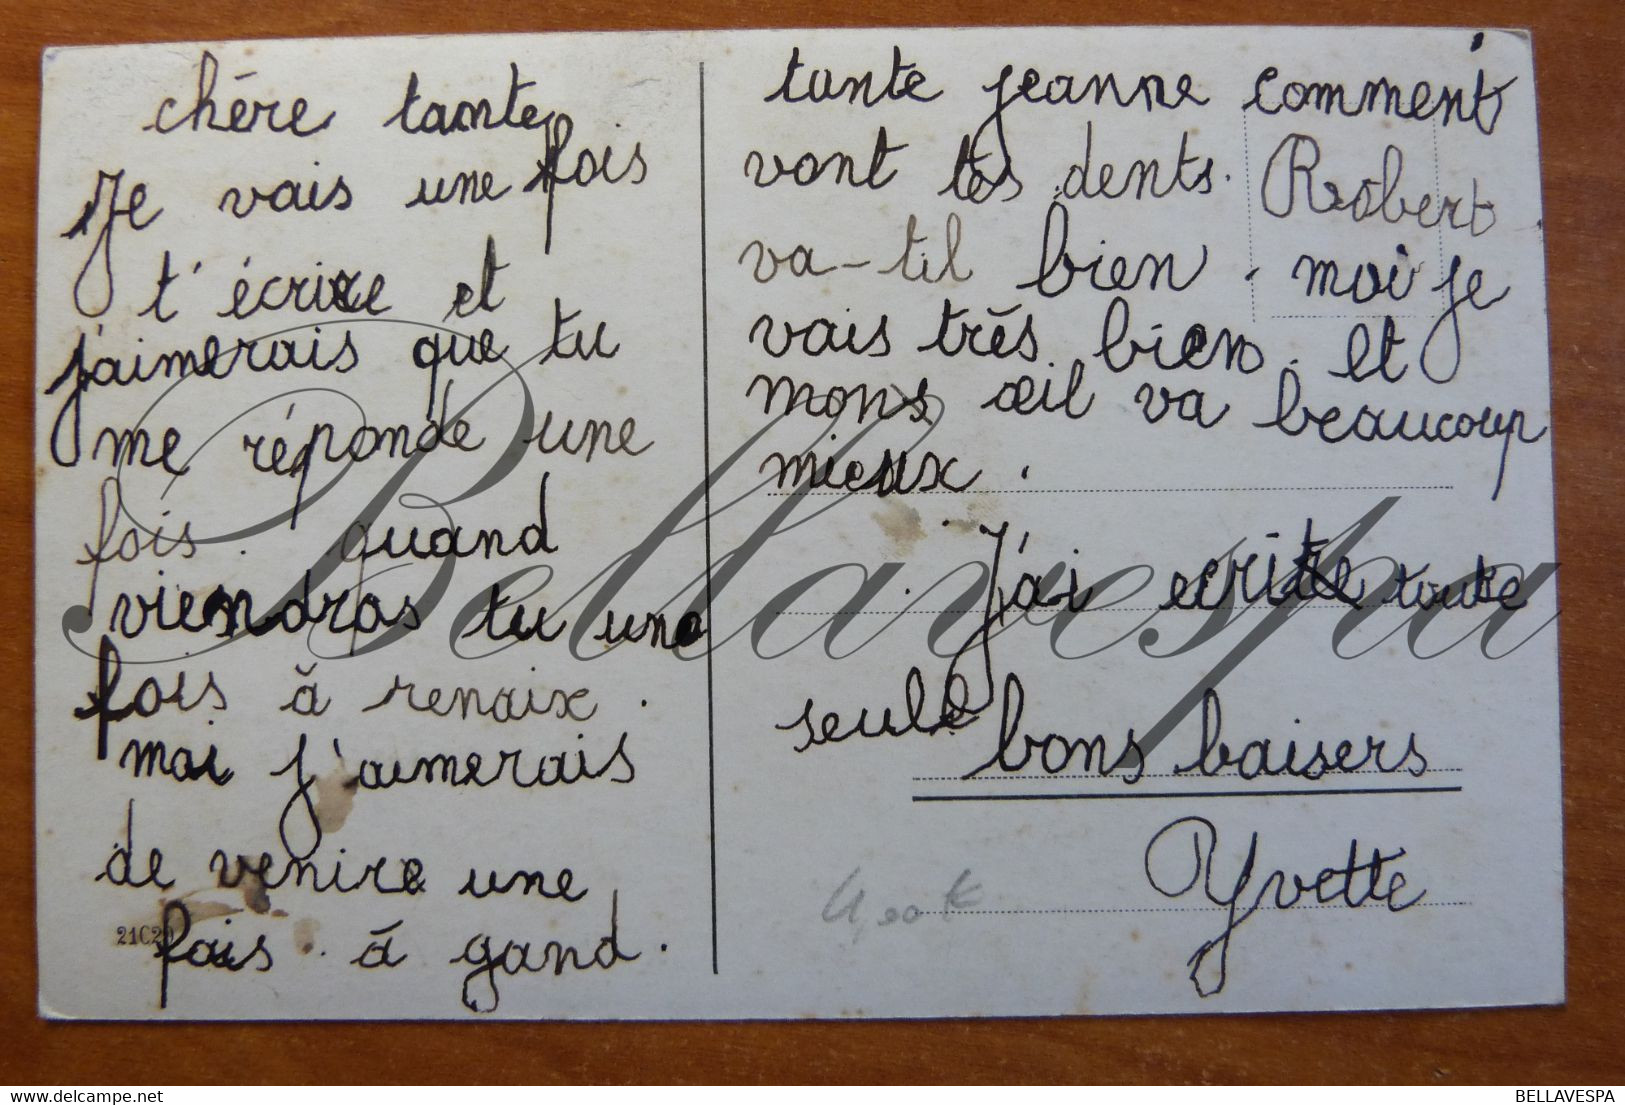 chère tante
Je vais une fois
t'écrire et
j'aimerais que tu
me réponde une
fois. quand
viendras tu une
fois à renaix.
moi j'aimerais
de venire une
fois. à gand.
21C20
tante jeanne comment
vont tes dents. Robert
va-til bien. moi je
vais très bien. et
mons œil va beaucoup
mieux.
J'ai ecrite toute
seule
bons baisers
Yvette
4,00€
Bellavespa
delcampe.net
BELLAVESPA